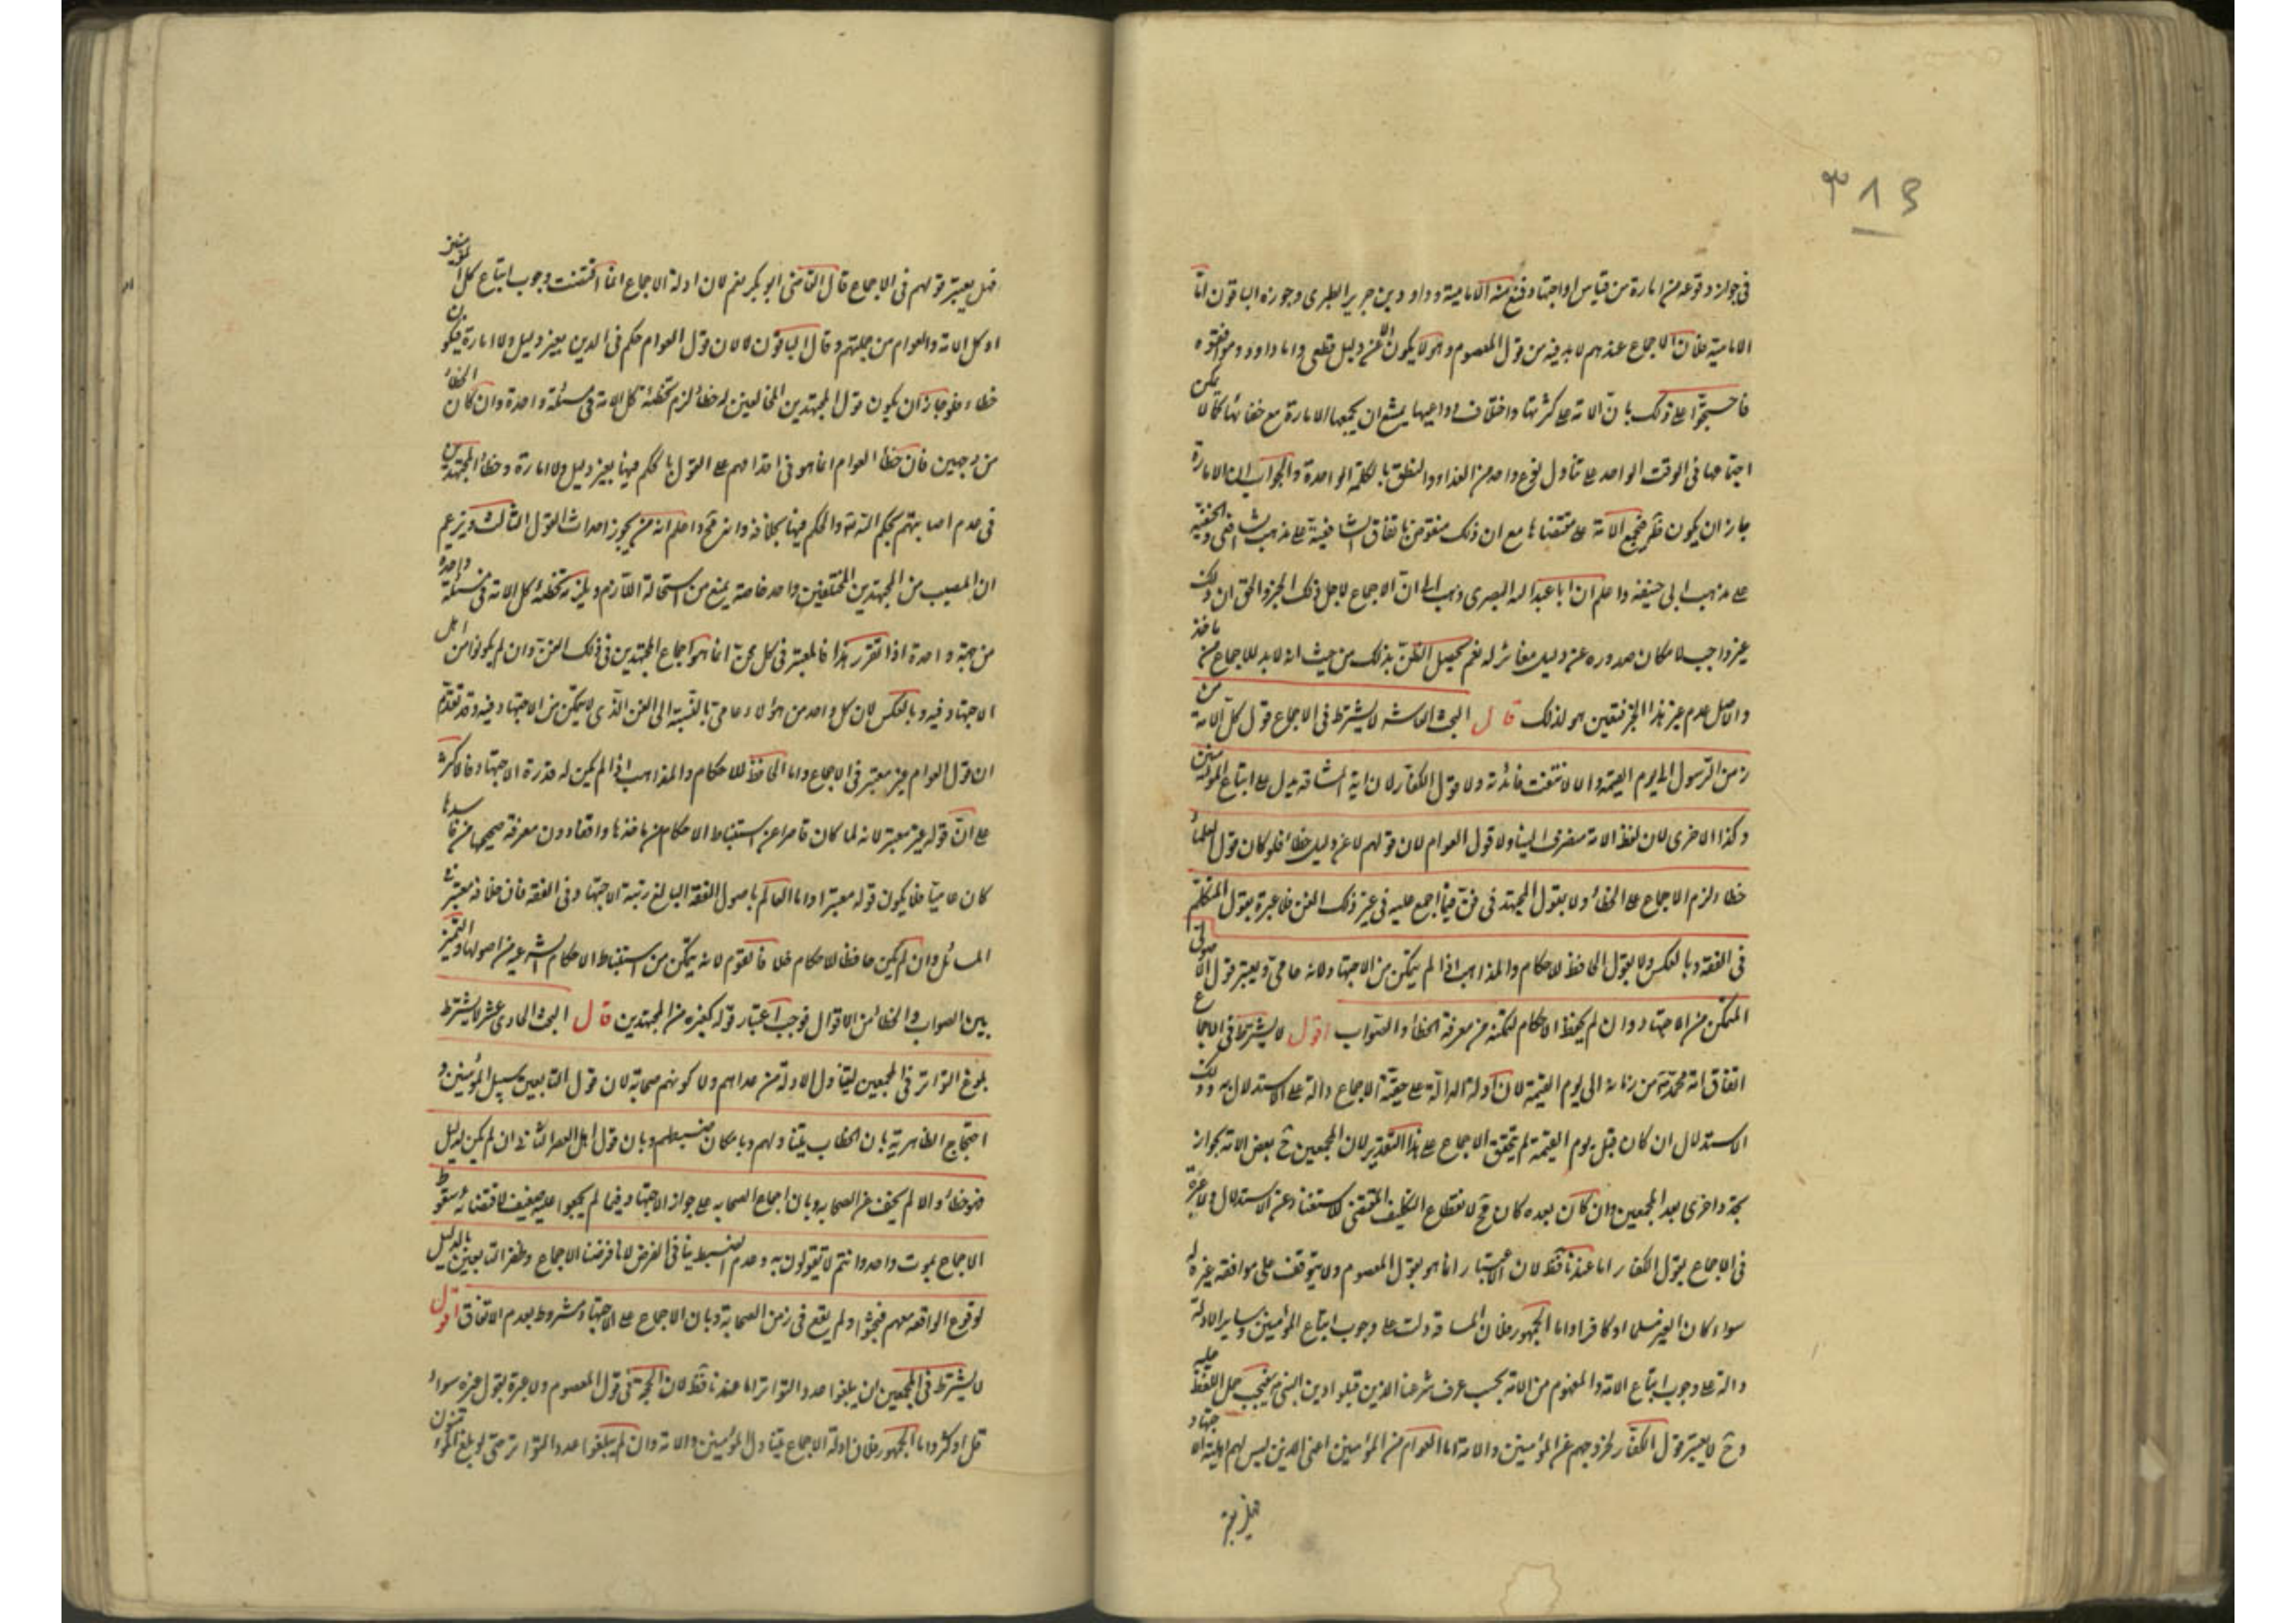 ٣٨٤
في جواز وقوعه عن امارة من قياس او اجتهاد فمنع منه الامامية وداود بن جرير الطبري وجوزه الباقون اما
الامامية فلان الاجماع عندهم لا بد فيه من قول المعصوم وهو لا يكون الا عن دليل قطعي واما داود وموافقوه
فاحتجوا على ذلك بان الامة على كثرتها واختلاف دواعيها يمتنع ان يجمعها الامارة مع خفائها كما لا يمكن
اجتماعها في الوقت الواحد على تناول نوع واحد من الغذاء والنطق بالكلمة الواحدة والجواب ان الامارة
جاز ان يكون فتجمع الامة على مقتضاها مع ان ذلك منقوض باتفاق الشافعية على مذهب الشافعي والحنفية
على مذهب ابي حنيفة واعلم ان ابا عبد الله البصري ذهب الى ان الاجماع لاجل ذلك الخبر والحق ان ذلك
غير واجب لامكان صدوره عن دليل مغائر له نعم يحصل الظن بذلك من حيث انه لا بد للاجماع من ماخذ
والاصل عدم غير هذا الخبر فتعين هو لذلك قال البحث العاشر لا يشترط في الاجماع قول كل الامة من
زمن الرسول الى يوم القيمة والا لانتفت فائدته ولا قول الكفار لان اية المشاقة يدل على اتباع المؤمنين
وكذا الاخرى لان لفظ الامة منصرف الينا ولا قول العوام لان قولهم لا عن دليل خطاء فلو كان قول العلماء
خطاء لزم الاجماع على الخطاء ولا بقول المجتهد في فن فيما اجمع عليه في غير ذلك الفن فلا عبرة بقول المتكلم
في الفقه وبالعكس ولا بقول الحافظ للاحكام والمذاهب اذا لم يتمكن من الاجتهاد لانه عامي ويعتبر قول الاصولي
المتمكن من الاجتهاد وان لم يحفظ الاحكام لتمكنه من معرفة الخطاء والصواب اقول لا يشترط في الاجماع
اتفاق امة محمد من زمانه الى يوم القيمة لان ادلة الدالة على حقية الاجماع دالة على الاستدلال به وذلك
الاستدلال ان كان قبل يوم القيمة لم يتحقق الاجماع على هذا التقدير لان المجمعين ح بعض الامة لجواز
تجدد اخرى بعد المجمعين وان كان بعده كان قبح لانقطاع التكليف المقتضي للاستغناء عن الاستدلال ولا عبرة
في الاجماع بقول الكفار اما عندنا فقط لان الاعتبار انما هو بقول المعصوم ولا يتوقف على موافقة غيره له
سواء كان الغير مسلما او كافرا واما الجمهور فلان المشاقة دلت على وجوب اتباع المؤمنين وساير الادلة
دالة على وجوب اتباع الامة والمفهوم من الامة بحسب عرف شرعنا الذين قبلوا دين النبي فيجب حمل اللفظ عليه
وح لا يعتبر قول الكفار لخروجهم عن المؤمنين والامة اما العوام من المؤمنين اعني الذين ليس لهم اهلية الاجتهاد
فهل يعتبر
فهل يعتبر قولهم في الاجماع قال القاضي ابو بكر نعم لان ادلة الاجماع انما اقتضت وجوب اتباع كل المؤمنين
او كل الامة والعوام من جملتهم وقال الباقون لا لان قول العوام حكم في الدين بغير دليل ولا امارة فيكون
خطاء فلو جاز ان يكون قول المجتهدين المخالفين له خطاء لزم تخطئة كل الامة في مسئلة واحدة وان كان الخطاء
من وجهين فان خطأ العوام انما هو في اقدامهم على القول بالحكم فيها بغير دليل ولا امارة وخطاء المجتهدين
في عدم اصابتهم بحكم الله والحكم فيها بخلافه وانه قبح واعلم ان من يجوز احداث القول الثالث ويزعم
ان المصيب من المجتهدين المختلفين واحد خاصة يمنع من استحالة اللازم ويلزمه تخطئة كل الامة في مسئلة واحدة
من جهة واحدة اذا تقرر هذا فالمعتبر في كل فن انما هو اجماع المجتهدين في ذلك الفن وان لم يكونوا من اهل
الاجتهاد فيه وبالعكس لان كل واحد من هؤلاء عامي بالنسبة الى الفن الذي لا يتمكن من الاجتهاد فيه وقد تقدم
ان قول العوام غير معتبر في الاجماع واما الحافظ للاحكام والمذاهب اذا لم يكن له قدرة الاجتهاد فالاكثر
على ان قوله غير معتبر لانه لما كان قاصرا عن استنباط الاحكام من ماخذها وفاقدا دون معرفة صحيحها من فاسدها
كان عاميا فلا يكون قوله معتبرا واما العالم باصول الفقه البالغ رتبة الاجتهاد وفي الفقه فان خلافه معتبر في
المسائل وان لم يكن حافظا للاحكام خلافا لقوم لانه يتمكن من استنباط الاحكام الشرعية من اصولها والتميز
بين الصواب والخطاء من الاقوال فوجب اعتبار قوله كغيره من المجتهدين قال البحث الحادي عشر لا يشترط
بلوغ التواتر في المجمعين لتناول الادلة من عداهم ولا كونهم صحابة لان قول التابعين سبيل المؤمنين و
احتجاج الظاهرية بان الخطاب يتناولهم وبامكان ضبطهم وبان قول اهل العصر الثاني ان لم يكن لدليل
فهو خطاء والا لم يخف عن الصحابة وبان اجماع الصحابة على جواز الاجتهاد فيما لم يجمعوا عليه ضعيف لاقتضائه سقوط
الاجماع بموت واحد وانتم لا تقولون به وعدم الضبط ينافي الفرض لانا فرضنا الاجماع وظفر التابعين بالدليل
لوقوع الواقعة معهم فبحثوا ولم يقع في زمن الصحابة وبان الاجماع على الاجتهاد مشروط بعدم الاتفاق اقول
لا يشترط في المجمعين ان يبلغوا عدد التواتر اما عندنا فقط لان الحجة في قول المعصوم ولا عبرة بقول غيره سواء
قل او كثر واما الجمهور فلان ادلة الاجماع يتناول المؤمنين والامة وان لم يبلغوا عدد التواتر حتى لو بلغ المؤمنون